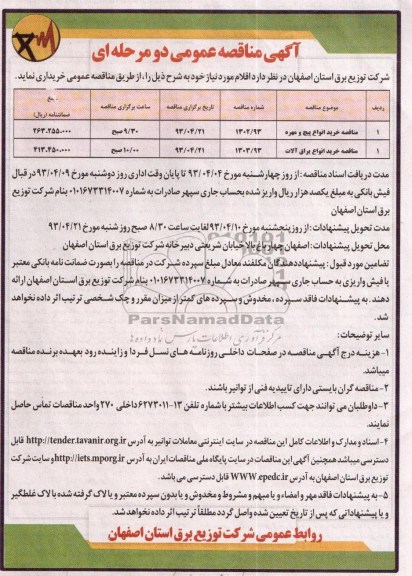 آگهی مناقصه عمومی دو مرحله ای
شرکت توزیع برق استان اصفهان در نظر دارد اقلام مورد نیاز خود به شرح ذیل را ، از طریق مناقصه عمومی خریداری نماید.
ردیف موضوع مناقصه شماره مناقصه تاریخ برگزاری مناقصه ساعت برگزاری مناقصه مبلغ ضمانتنامه (ریال)
۱ مناقصه خرید انواع پیچ و مهره ۱۳۰۲/۹۳ ۹۳/۰۴/۲۱ ۹/۳۰ صبح ۲۶۳.۲۵۵.۰۰۰
۱ مناقصه خرید انواع یراق آلات ۱۳۰۳/۹۳ ۹۳/۰۴/۲۱ ۱۰/۰۰ صبح ۴۱۳.۲۵۰.۰۰۰
مدت دریافت اسناد مناقصه : از روز چهارشنبه مورخ ۹۳/۰۴/۰۴ تا پایان وقت اداری روز دوشنبه مورخ ۹۳/۰۴/۰۹ در قبال
فیش بانکی به مبلغ یکصد هزار ریال واریز شده بحساب جاری سپهر صادرات به شماره ۰۱۰۱۶۷۳۳۱۴۰۰۷ بنام شرکت توزیع
برق استان اصفهان
مدت تحویل پیشنهادات : از روز پنجشنبه مورخ ۹۳/۰۴/۱۰ لغایت ساعت ۸/۳۰ صبح روز شنبه مورخ ۹۳/۰۴/۲۱
محل تحویل پیشنهادات : اصفهان چهارباغ بالا خیابان شریعتی دبیرخانه شرکت توزیع برق استان اصفهان
تضامین مورد قبول : پیشنهاددهندگان مکلفند معادل مبلغ سپرده شرکت در مناقصه را بصورت ضمانت نامه بانکی معتبر
یا فیش واریزی به حساب جاری سپهر صادرات به شماره ۰۱۰۱۶۷۳۳۱۴۰۰۷ بنام شرکت توزیع برق استان اصفهان ارائه
دهند . به پیشنهادات فاقد سپرده ، مخدوش و سپرده های کمتر از میزان مقرر و چک شخصی ترتیب اثر داده نخواهد
شد.
ParsNamadData
سایر توضیحات:
۱- هزینه درج آگهی مناقصه در صفحات داخلی روزنامه های نسل فردا و زاینده رود بعهده برنده مناقصه
میباشد.
۲- مناقصه گران بایستی دارای تاییدیه فنی از توانیر باشند.
۳- داوطلبان می توانند جهت کسب اطلاعات بیشتر با شماره تلفن ۱۳-۶۲۷۳۰۱۱ داخلی ۲۷۰ واحد مناقصات تماس حاصل
نمایند.
۴- اسناد و مدارک و اطلاعات کامل این مناقصه در سایت اینترنتی معاملات توانیر به آدرس http://tender.tavanir.org.ir قابل
دسترسی میباشد همچنین آگهی این مناقصات در سایت پایگاه ملی مناقصات ایران به آدرس http://iets.mporg.ir و سایت شرکت
توزیع برق استان اصفهان به آدرس WWW.epedc.ir قابل دسترسی می باشد.
۵- به پیشنهادات فاقد مهر و امضاء و یا مبهم و مشروط و مخدوش و یا بدون سپرده معتبر و یا لاک گرفته شده یا لاک غلطگیر
و یا پیشنهاداتی که پس از تاریخ تعیین شده واصل گردد مطلقاً ترتیب اثر داده نخواهد شد.
روابط عمومی شرکت توزیع برق استان اصفهان